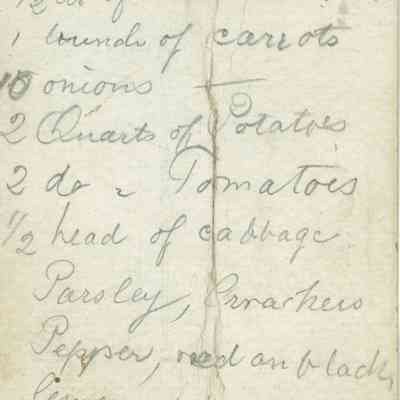 1/2
1 bunch of carrots
10 onions
2 Quarts of Potatoes
2 do " Tomatoes
1/2 head of cabbage
Parsley, Crackers
Pepper, red an black